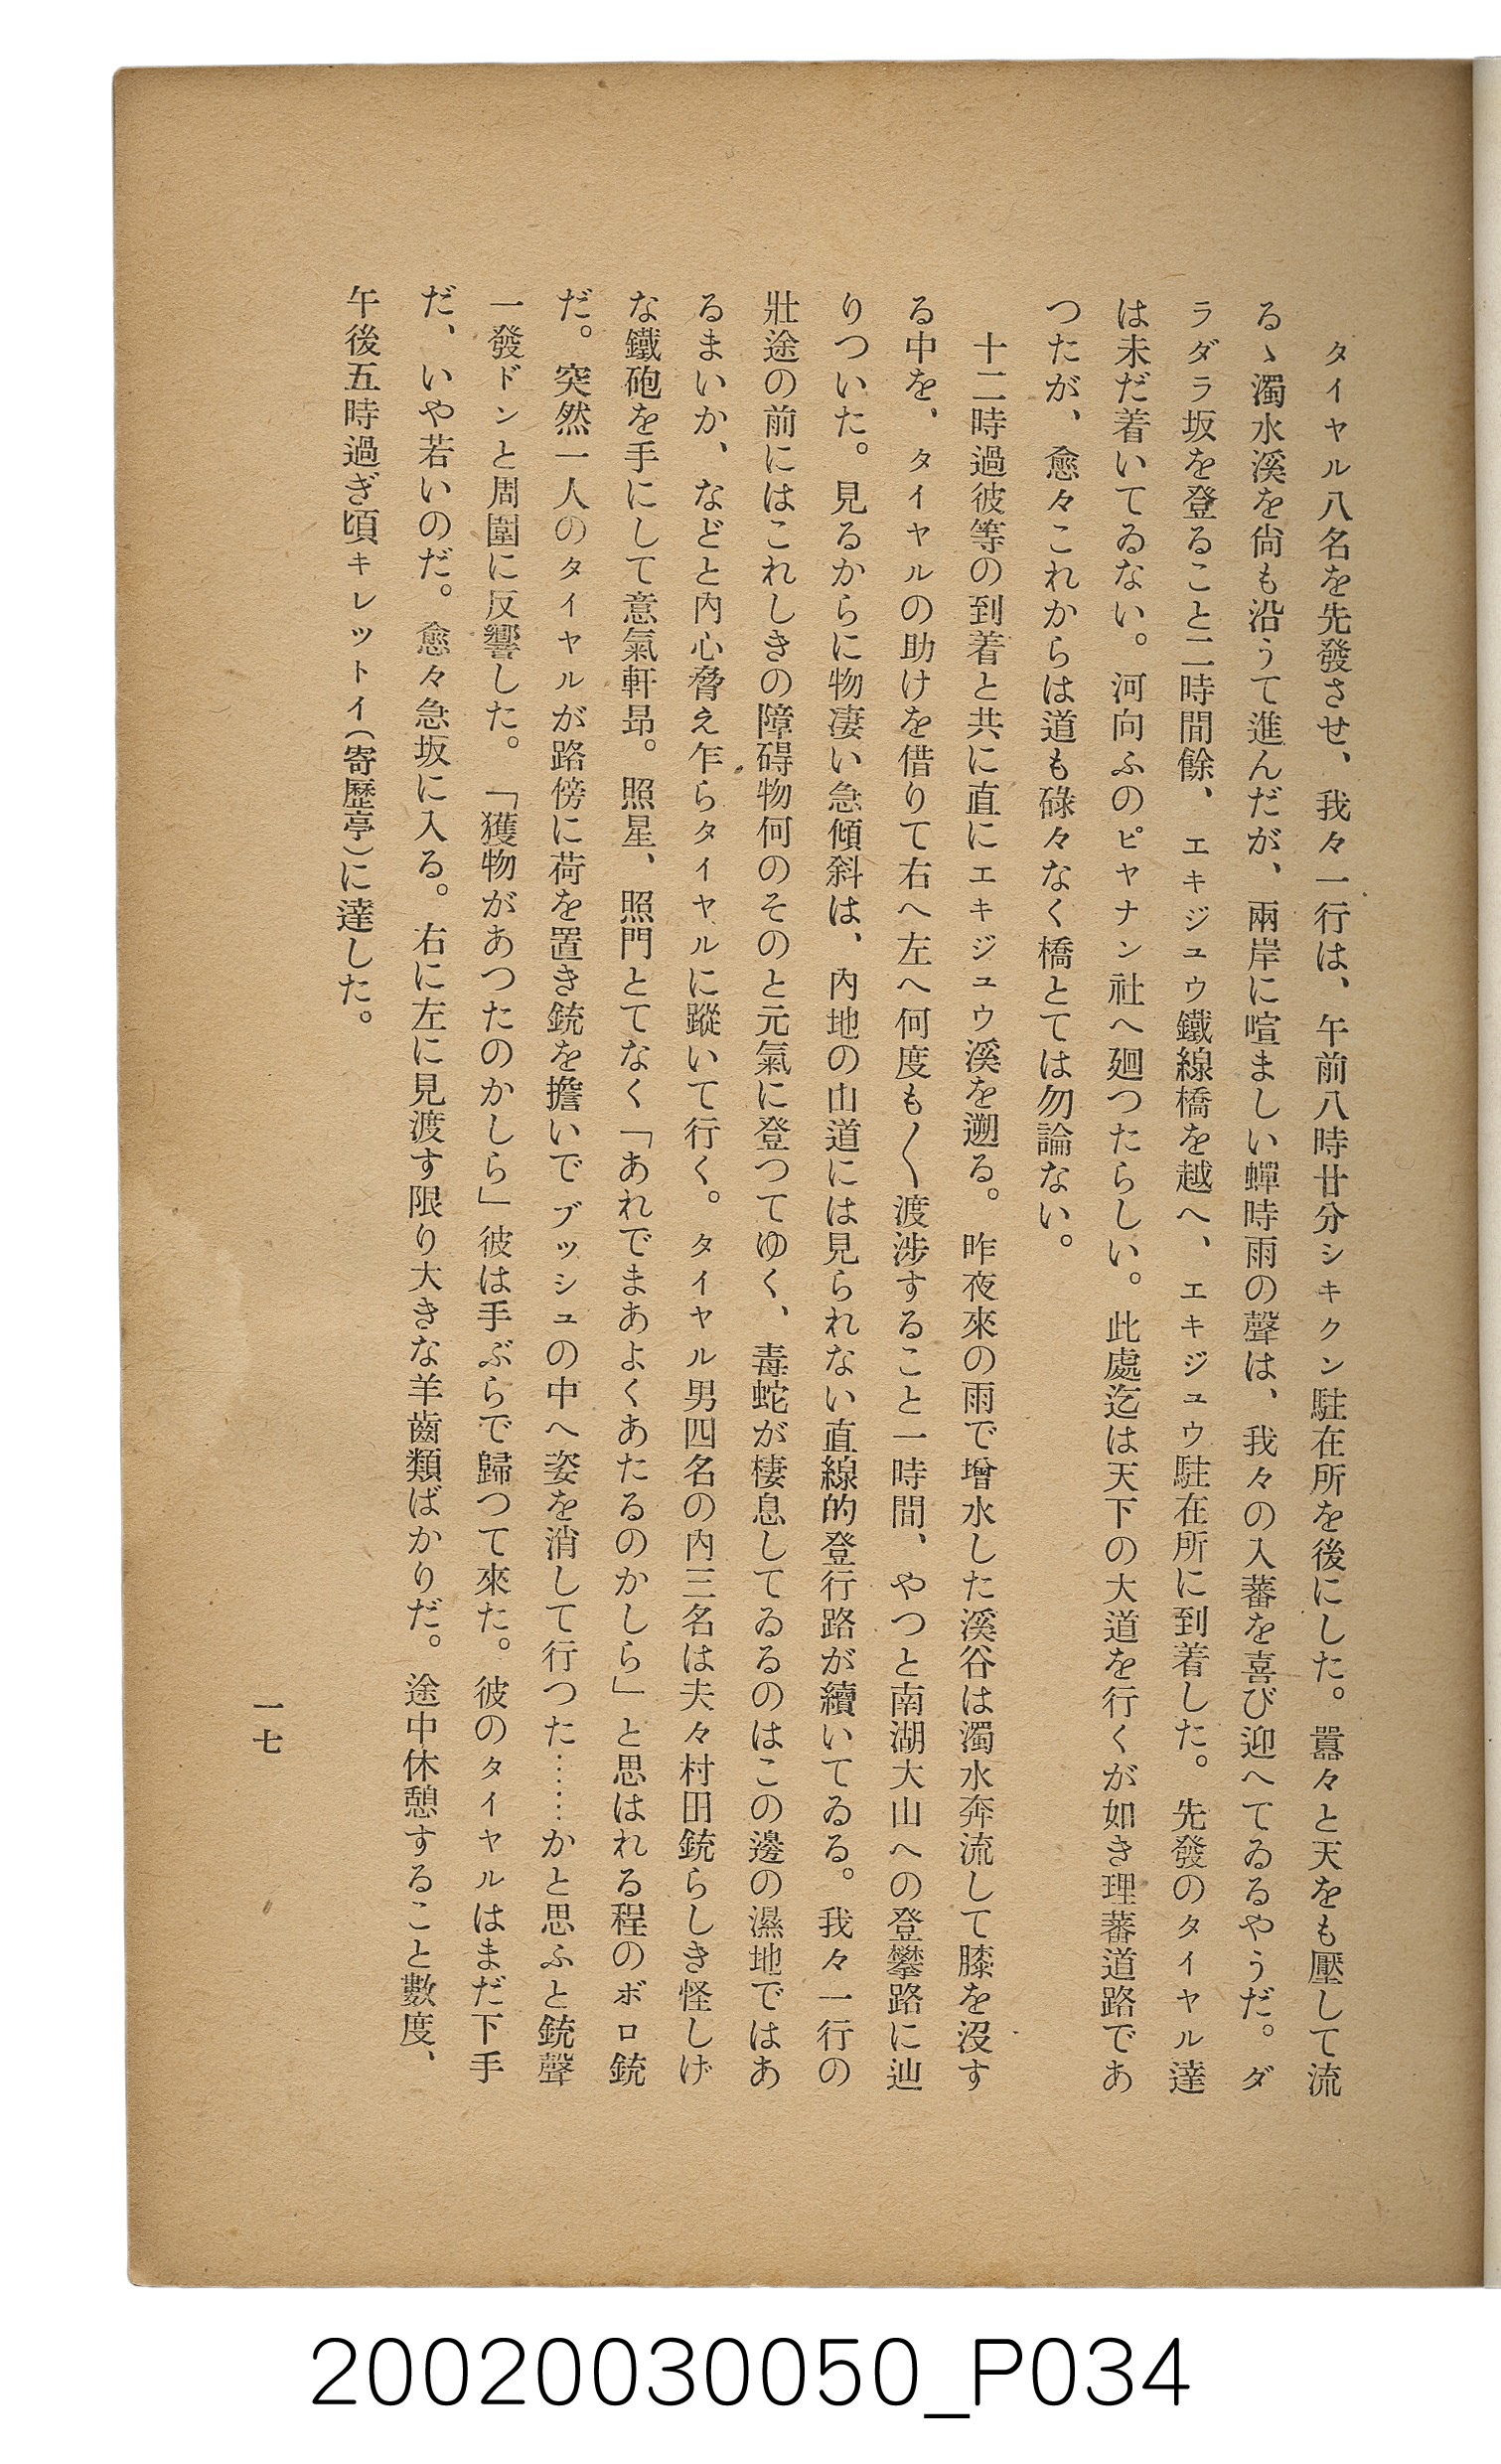 タイヤル八名を先發させ、我々一行は、午前八時廿分シキクン駐在所を後にした。囂々と天をも壓して流
るゝ濁水溪を尙も沿うて進んだが、兩岸に喧ましい蟬時雨の聲は、我々の入蕃を喜び迎へてゐるやうだ。ダ
ラダラ坂を登ること二時間餘、エキジュウ鐵線橋を越へ、エキジュウ駐在所に到着した。先發のタイヤル達
は未だ着いてゐない。河向ふのピヤナン社へ廻つたらしい。此處迄は天下の大道を行くが如き理蕃道路であ
つたが、愈々これからは道も碌々なく橋とては勿論ない。
十二時過彼等の到着と共に直にエキジュウ溪を遡る。昨夜來の雨で增水した溪谷は濁水奔流して膝を沒す
る中を、タイヤルの助けを借りて右へ左へ何度も〳〵渡涉すること一時間、やつと南湖大山への登攀路に辿
りついた。見るからに物凄い急傾斜は、內地の山道には見られない直線的登行路が續いてゐる。我々一行の
壯途の前にはこれしきの障碍物何のそのと元氣に登つてゆく、毒蛇が棲息してゐるのはこの邊の濕地ではあ
るまいか、などと內心脅え乍らタイヤルに蹤いて行く。タイヤル男四名の內三名は夫々村田銃らしき怪しげ
な鐵砲を手にして意氣軒昂。照星、照門とてなく「あれでまあよくあたるのかしら」と思はれる程のボロ銃
だ。突然一人のタイヤルが路傍に荷を置き銃を擔いでブッシュの中へ姿を消して行つた……かと思ふと銃聲
一發ドンと周圍に反響した。「獲物があつたのかしら」彼は手ぶらで歸つて來た。彼のタイヤルはまだ下手
だ、いや若いのだ。愈々急坂に入る。右に左に見渡す限り大きな羊齒類ばかりだ。途中休憩すること數度、
午後五時過ぎ頃キレットイ（寄歷亭）に達した。
一七
20020030050_P034